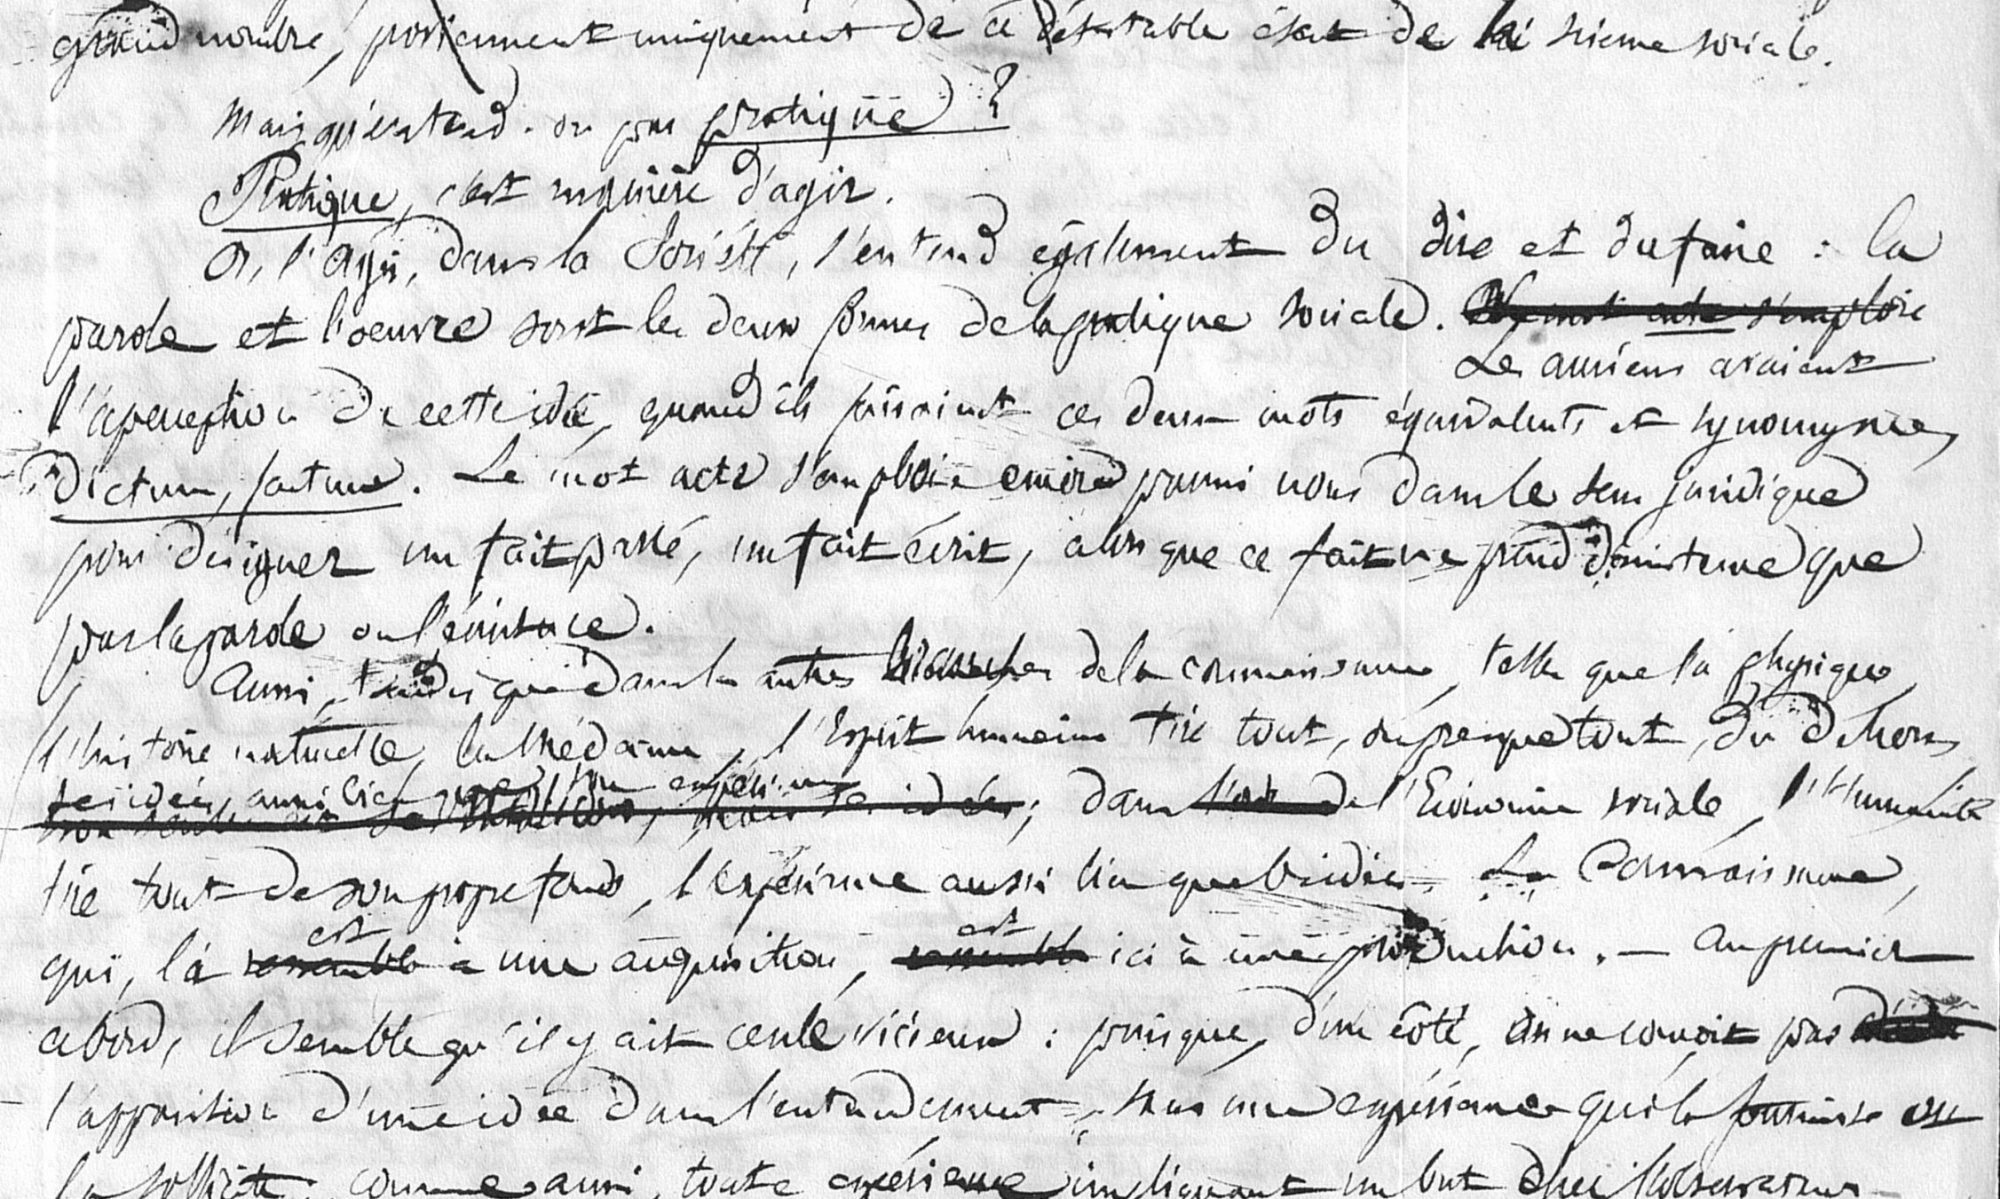 grand nombre, proviennent uniquement de ce détestable état de la science sociale.
Mais qu'entend-on par pratique ?
Pratique, c'est manière d'agir.
Or, l'Agir, dans la Société, s'entend également du dire et du faire : la
parole et l'oeuvre sont les deux formes de la pratique sociale. Le mot acte s'emploie
Les anciens avaient
l'aperception de cette idée, quand ils faisaient ces deux mots équivalents et synonymes,
dictum, factum. Le mot acte s'emploie encore parmi nous dans le sens juridique
pour désigner un fait passé, un fait écrit, alors que ce fait ne prend d'existence que
par la parole ou l'écriture.
Aussi, tandis que dans les autres branches de la connaissance, telles que la physique,
l'histoire naturelle, la médecine, l'Esprit humain tire tout, ou presque tout, du dehors,
ses idées, aussi bien que son expérience
ses idées ; dans de l'Economie sociale, l'Humanité
tire tout de son propre fonds, l'expérience aussi bien que l'idée. La Connaissance,
est est
qui, là ressemble à une acquisition, ressemble ici à une production. — Au premier
abord, il semble qu'il y ait cercle vicieux : puisque, d'un côté, on ne conçoit pas
l'apparition d'une idée dans l'entendement, sans une expérience qui la fournisse ou
la sollicite ; comme aussi, toute expérience impliquant un but chez l'observateur